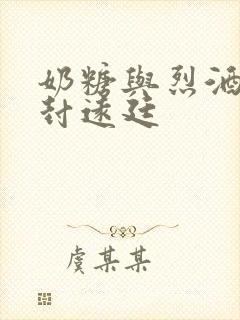 奶糖與烈酒
封遠廷
虞某某